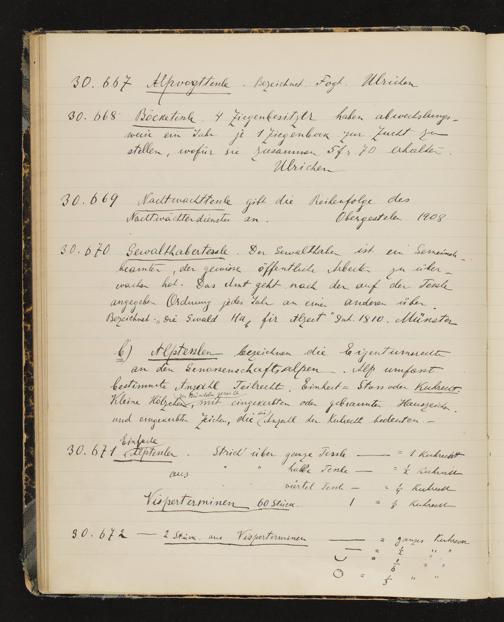 30.667 Alpvogttessle. Bezeichnet Fogt. Ulrichen
30.668 Böcketessle. 4 Ziegenbesitzer haben abwechslungs-
weise ein Jahr je 1 Ziegenbock zur Zucht zu
stellen, wofür sie zusammen 5 fr. 70 erhalten.
Ulrichen
30.669 Nachtwachttessle gibt die Reihenfolge des
Nachtwächterdienstes an. Obergesteln 1908
30.670 Gewalthabertessle. Der Gewalthaber ist ein Gemeinde-
beamter, der gewisse öffentliche Arbeiten zu über-
wachen hat. Das Amt geht nach der auf der Tessle
angegeben Ordnung jedes Jahr an einen anderen über
Bezeichnet: "Die Gewald für Jahr 1810. Münster
b) Alptesslen bezeichnen die Eigentumsrechte
an den Genossenschaftsalpen. Alp umfasst
bestimmte Anzahl Teilrecht. Einheit = Stoss oder Kuhrecht
Kleine Hölzchen, zu Bündeln gereiht mit eingekerbten oder gebrannten Hauszeichen.
und eingekerbten Zeichen, die die Anzahl der Kuhrecht bedeuten -
Einfache
30.671 Alptesslen. Strich über ganze Tessle — = 1 Kuhrecht
aus " " halbe Tessle — = ½ Kuhrecht
viertel Tessle - = ¼ Kuhrecht
Visperterminen 60 Stück. 1 = Kuhrecht
30.672 — 2 Stück aus Visperterminen — = ganzes Kuhrecht
— = ½ " "